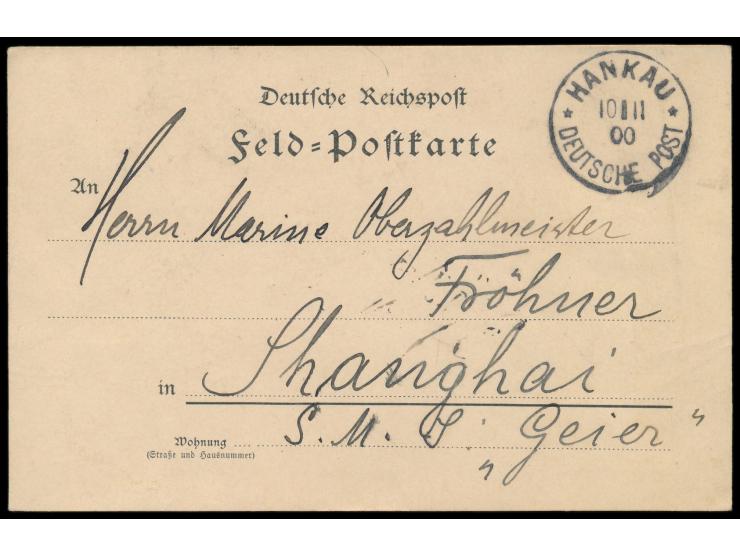 Deutsche Reichspost
Feld=Postkarte
* HANKAU *
10 11
00
DEUTSCHE POST
An
Herrn Marine Oberzahlmeister
Fröhner
in Shanghai
Wohnung S. M. S. „Geier“
(Straße und Hausnummer)